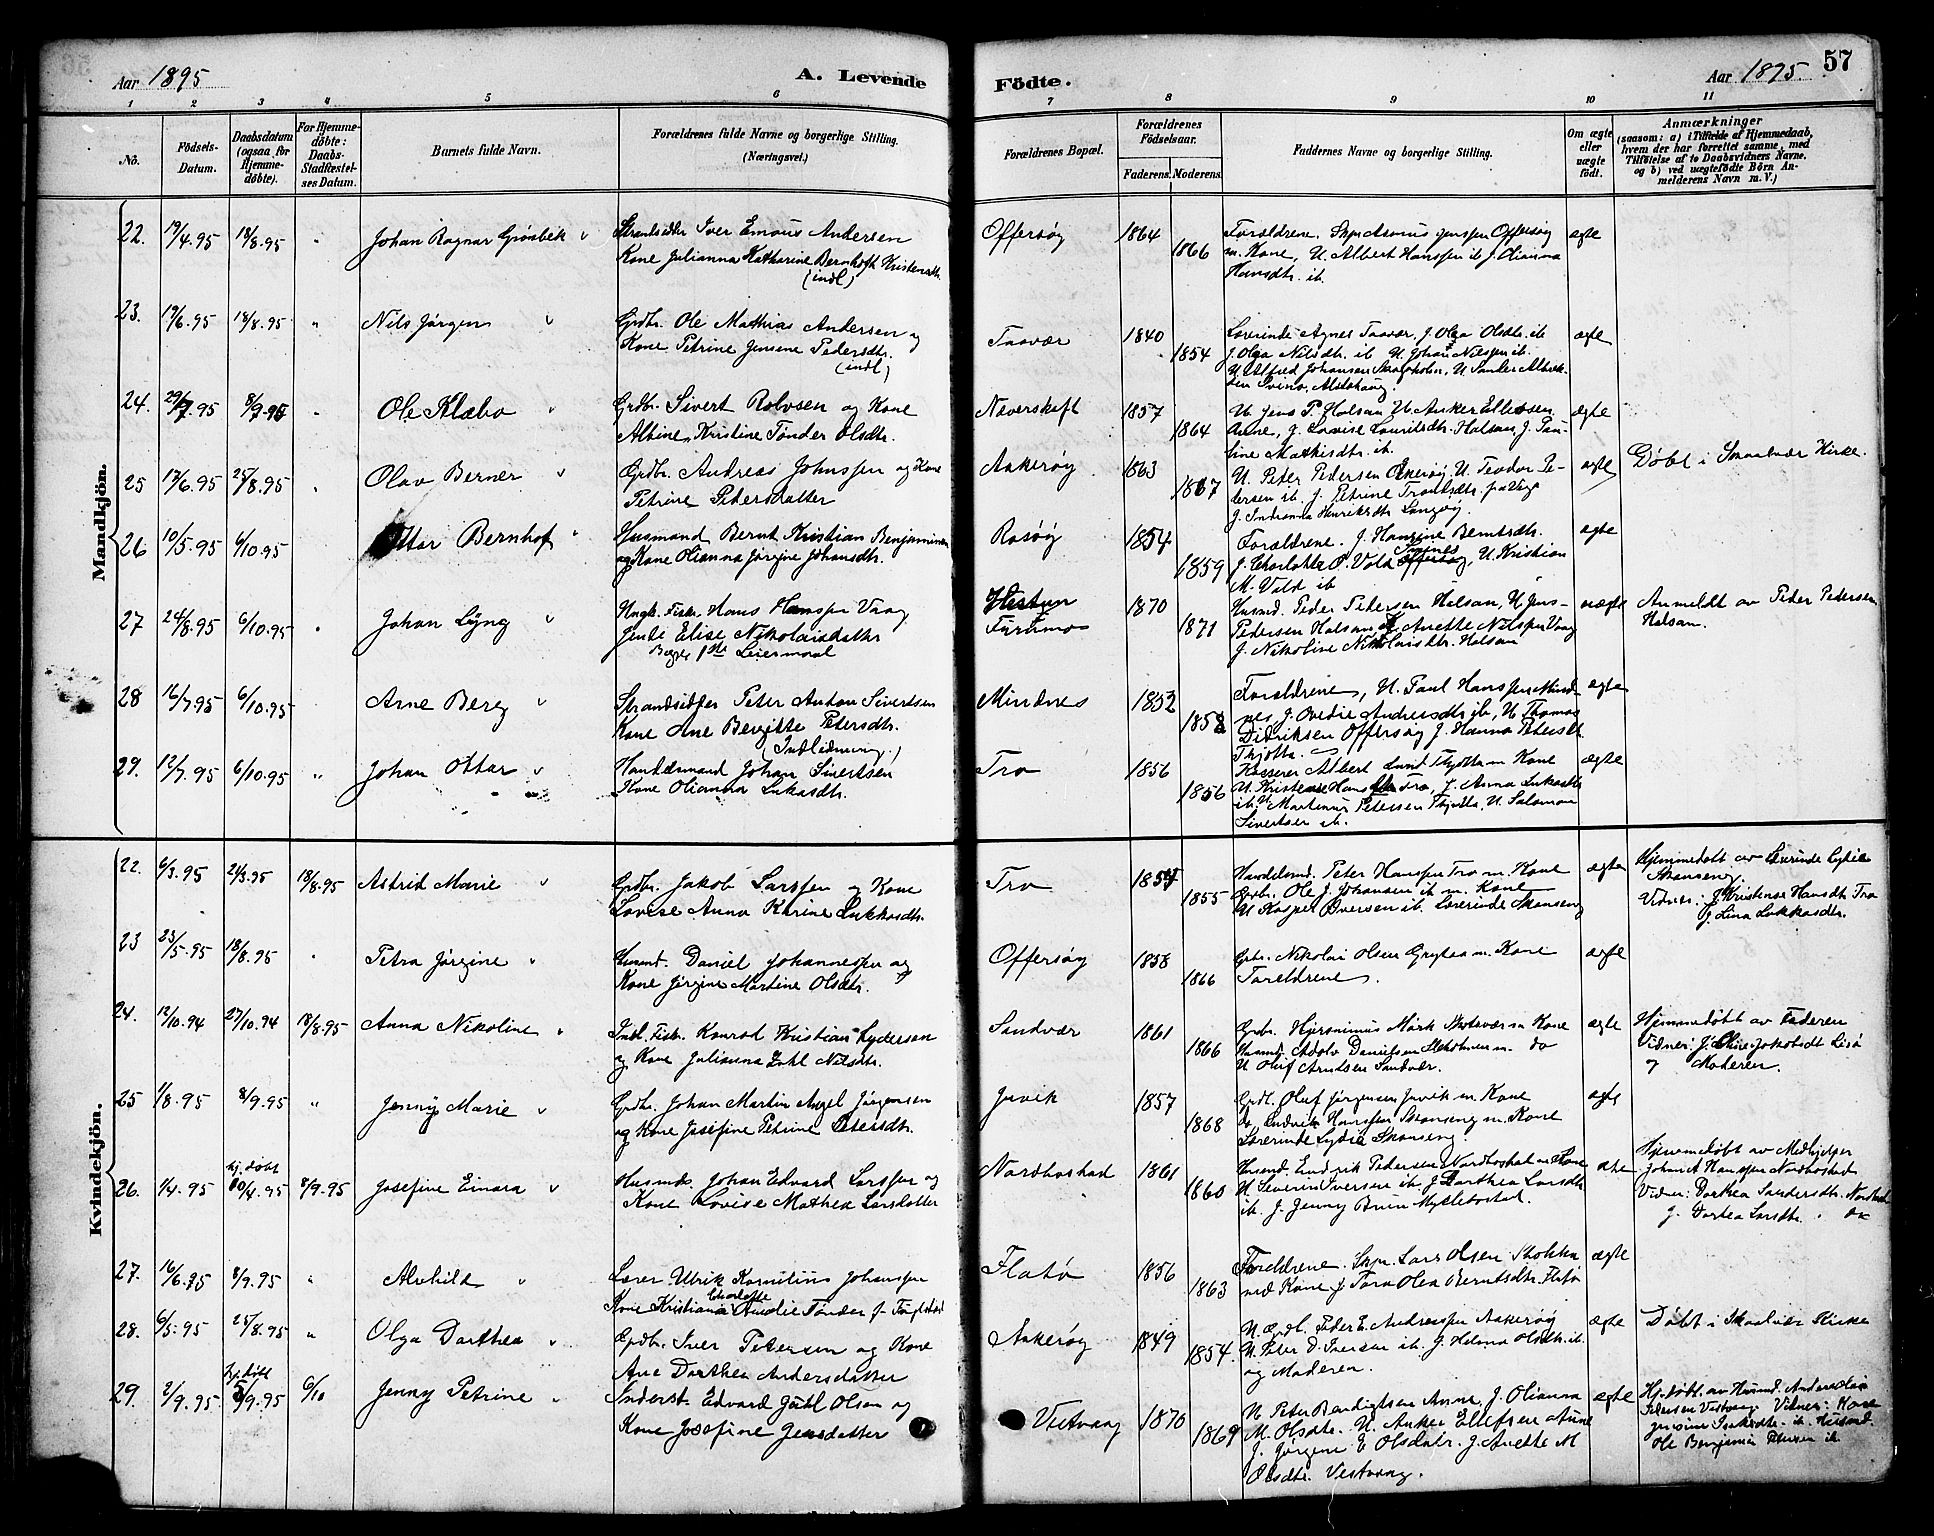 Aar 1895
A. Levende
Födte.
Aar 1895
57
1 2 3 4 5 6 7 8 9 10 11
No.
Födsels-Datum.
Daabsdatum (ogsaa for Hjemmedöbte).
For Hjemmedöbte: Daabs-Stadfæstelses Datum.
Barnets fulde Navn.
Forældrenes fulde Navne og borgerlige Stilling. (Næringsvei.)
Forældrenes Bopæl.
Forældrenes Födselsaar.
Faderens. Moderens.
Faddernes Navne og borgerlige Stilling.
Om ægte eller uægte födt.
Anmærkninger
(saasom: a) i Tilfælde af Hjemmedaab, hvem der har forrettet samme, med Tilföielse af to Daabsvidners Navne. og b) ved uægtefödte Börn Anmelderens Navn m. V.)
Mandkjön.
22. 19/4.95 18/8.95 " Johan Ragnar Grönbek
Strandsidder Iver Emaus Andersen
Kone Julianna Katharine Bernhoft Kristensdtr.
(indl)
Offersøy 1864 1866
Forældrene. Skpr Asmus Jenssen Offersøy
m. Kone, U. Albert Hanssen ib J. Olianna
Hansdtr. ib.
ægte
23. 19/6.95 18/8.95 " Nils Jørgen
Grdbr. Ole Mathias Andersen og
Kone Petrine Jensene Pedersdtr.
(indl)
Taavær 1840 1854
Lærerinde Agnes Taavær, J. Olga Olsdtr. ib
J. Olga Nilsdtr. ib U. Johan Nilssen ib.
U. Alfred Johansen Skogsholm, U. Sander Albrik-
sen Svinø, Alstahaug.
ægte
24. 29/7.95 8/9.95 " Ole Klæbo
Grdbr. Sivert Rolvsen og Kone
Albine Kristine Tønder Olsdtr.
Næverskeft 1857 1864
U. Jens P. Halsan U. Anker Ellefsen
Aune, J. Lovise Lauritsdtr. Halsan, J. Pau-
line Mathisdtr. ib.
ægte
25 17/6.95 25/8.95 " Olav Berner
Grdbr. Andreas Johnssen og Kone
Petrine Petersdatter
Aakerøy 1863 1867
U. Peter Pedersen Aakerøy, U. Teodor Pe-
tersen ib. J. Petrine
J. Indianna Henriksdtr Langøy
ægte
Døbt i Skaalvær Kirke.
26 10/5.95 6/10.95 Ottar Bernhof
Husmand Bernt Kristian Benjaminsen
og Kone Olianna Jørgine Johansdtr.
Rosøy 1854 1859
Forældrene. J. Hansine Berntsdtr.
J. Charlotte O. Vold Tennes Offersøy, U. Kristian
M. Vold ib
ægte
27 24/8.95 6/10.95 " Johan Lyng
Ungk. Fisker Hans Hanssen Vaag
Jente Elise Nikolaisdatter
Begges 1ste Leiermaal
Hestun
Furumo 1870 1871
Husmd. Peder Pedersen Halsan, U. Jens
Pedersen Halsan, J. Anette Nilssen Vaag
J. Nikoline Nikolaisdtr. Halsan
uægte
Anmeldt av Peder Pedersen
Halsan.
28 16/7.95 6/10.95 Arne Berg
Strandsidder Peter Anton Sivertsen
Kone Ane Bergitte Petersdtr.
(Indlidnning.)
Mindnes 1852 1858
Forældrene, U. Paul Hanssen Mind-
nes, J. Ovedie Andersdtr ib, U. Thomas
Didriksen Offersøy J. Hanna Petersdtr.
Thjøtta.
ægte
29. 12/7.95 6/10.95 " Johan Ottar
Handelsmand Johan Sivertsen
Kone Olianna Lukasdtr.
Tro 1856 1856
Kasserer Albert Lund Thjøtta m Kone
U. Kristense Hansdtr Tro, J. Anna Lukasdtr
ib. U. Martinus Petersen Thjøtta, U. Salomon
Sivertsen ib.
ægte
Kvindekjön.
22. 6/3.95 24/3.95 18/8.95 Astrid Marie
Grdbr. Jakob Larssen og Kone
Lovise Anna Karine Lukkasdtr.
Tro 1854 1855
Handelsmd. Peter Hanssen Tro m. Kone
Grdbr. Ole J. Johansen ib m. Kone
U. Kasper Iversen ib. Lærerinde Skonseng
ægte
Hjemmedøbt av Lærerinde Lydie
Skonseng.
Vidner: J. Kristense Hansdtr Tro
J. Lina Lukkasdtr.
23 23/5.95 18/8.95 " Petra Jørgine
Husmd. Daniel Johannessen og
Kone Jørgine Martine Olsdtr.
Offersøy 1858 1866
Grbr. Nikolai Olsen Grytaa m. Kone
Forældrene.
ægte
24. 12/10.94 27/10.94 18/8.95 Anna Nikoline
Indl. Fisk. Konrad Kristian Lydersen
og Kone Julianna Dahl Nilsdtr.
Sandvær 1861 1866
Grdbr. Hjeronimus Mørk Skotsvær m Kone
Husmd. Adolv Danielsen Stokholmen m. do
U. Oluf Arntsen Sandvær.
ægte
Hjemmedøbt av Faderen
Vidner: J. Elise Jakobsdt
og Moderen.
25 1/8.95 8/9.95 " Jenny Marie
Grdbr. Johan Martin Angel Jørgensen
og Kone Josefine Petrine Petersdtr.
Juvik 1857 1868
Grdb. Oluf Jørgensen Juvik m. Kone
Do, Ludvik Hanssen Skonseng m. Kone
Lærerinde Lydie Skonseng.
ægte
26. 1/4.95 hj. døbt 10/4.95 8/9.95 Josefine Einara
Husmds. Johan Edvard Larssen og
Kone Lovise Mathea Larsdatter
Nordhostad 1861 1860
Husmd. Endrik Pedersen Nordhostad m Kone
U. Severin Iversen ib. J. Dorthea Larsdtr
ib. J. Jenny Bruun Myklebostad.
ægte
Hjemmedøbt av Medhjelper
Johan A Hanssen Nordhostad
Vidner: Dorthea Sandersdtr. Nordhostad
J. Dortea Larsdtr. do
27. 16/6.95 8/9.95 " Alvhild
Lærer Ulrik Kornelius Johanssen
Kone Kristiana Charlotte Amalie Tønder f.
Flatø 1856 1863
Forældrene. Skpr. Lars Olsen Stokka
med Kone J. Tora Olea Berntsdtr. Flatø
ægte
28. 6/5.95 25/8.95 " Olga Dorthea
Grdbr. Iver Petersen og Kone
Ane Dorthea Andersdatter
Aakerøy 1849 1854.
U. Grdb. Peder E. Andreassen Aakerøy
U. Peter D. Iversen ib. J. Helena Olsdtr. ib.
og Moderen.
ægte
Døbt i Skaalvær Kirke
29 2/9.95 hj. døbt 5/9.95 6/10 Jenny Petrine
Inderst Edvard Juhl Olsen og
Kone Josefine Jensdatter
Vistvaag 1870 1869
U. Peter Bendigtsen Aune, J. Olianna
M. Olsdtr. U. Anker Ellefsen Aune
J. Jørgine E Olsdatr. J. Anette M
Olsdtr. Vestvaag.
ægte
Hj. døbt. av Husmd. Anders
Pedersen Vistvaag Vidner: Kone
ib. Husmd.
Ole Benjamin Petersen ib